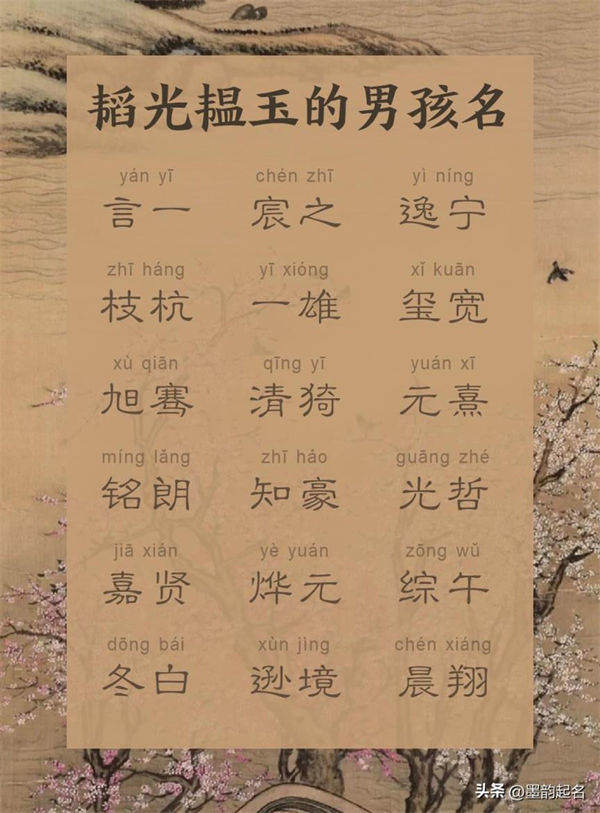 韬光韫玉的男孩名
yán yī chén zhī yì níng
言一 宸之 逸宁
zhī háng yī xióng xǐ kuān
枝杭 一雄 玺宽
xù qiān qīng yī yuán xī
旭骞 清猗 元熹
míng lǎng zhī háo guāng zhé
铭朗 知豪 光哲
jiā xián yè yuán zōng wǔ
嘉贤 烨元 综午
dōng bái xùn jìng chén xiáng
冬白 逊境 晨翔
头条 @墨韵起名